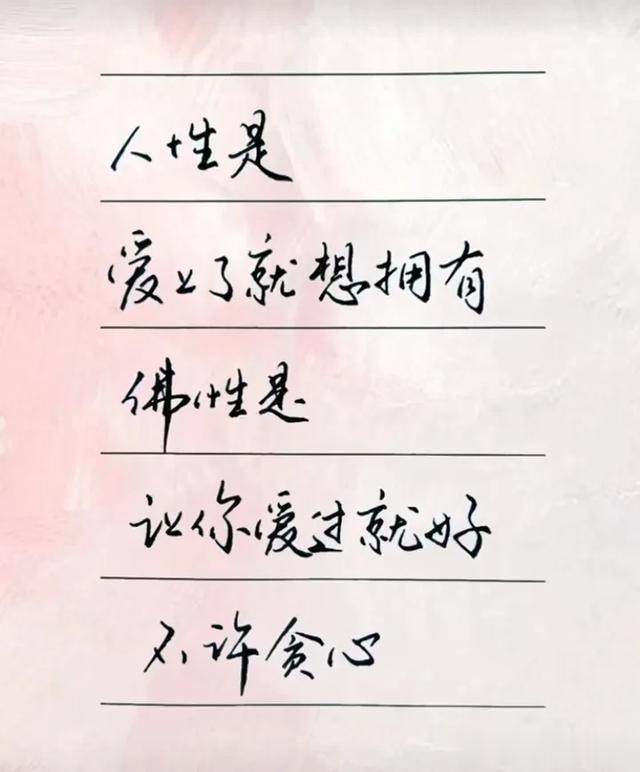 人性是
爱上了就想拥有
佛性是
让你爱过就好
不许贪心